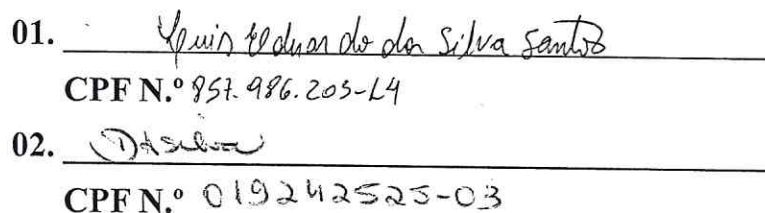 01. Luis Eduardo da Silva Santos
CPF N.º 857.986.205-L4
02. DASilva
CPF N.º 019242525-03